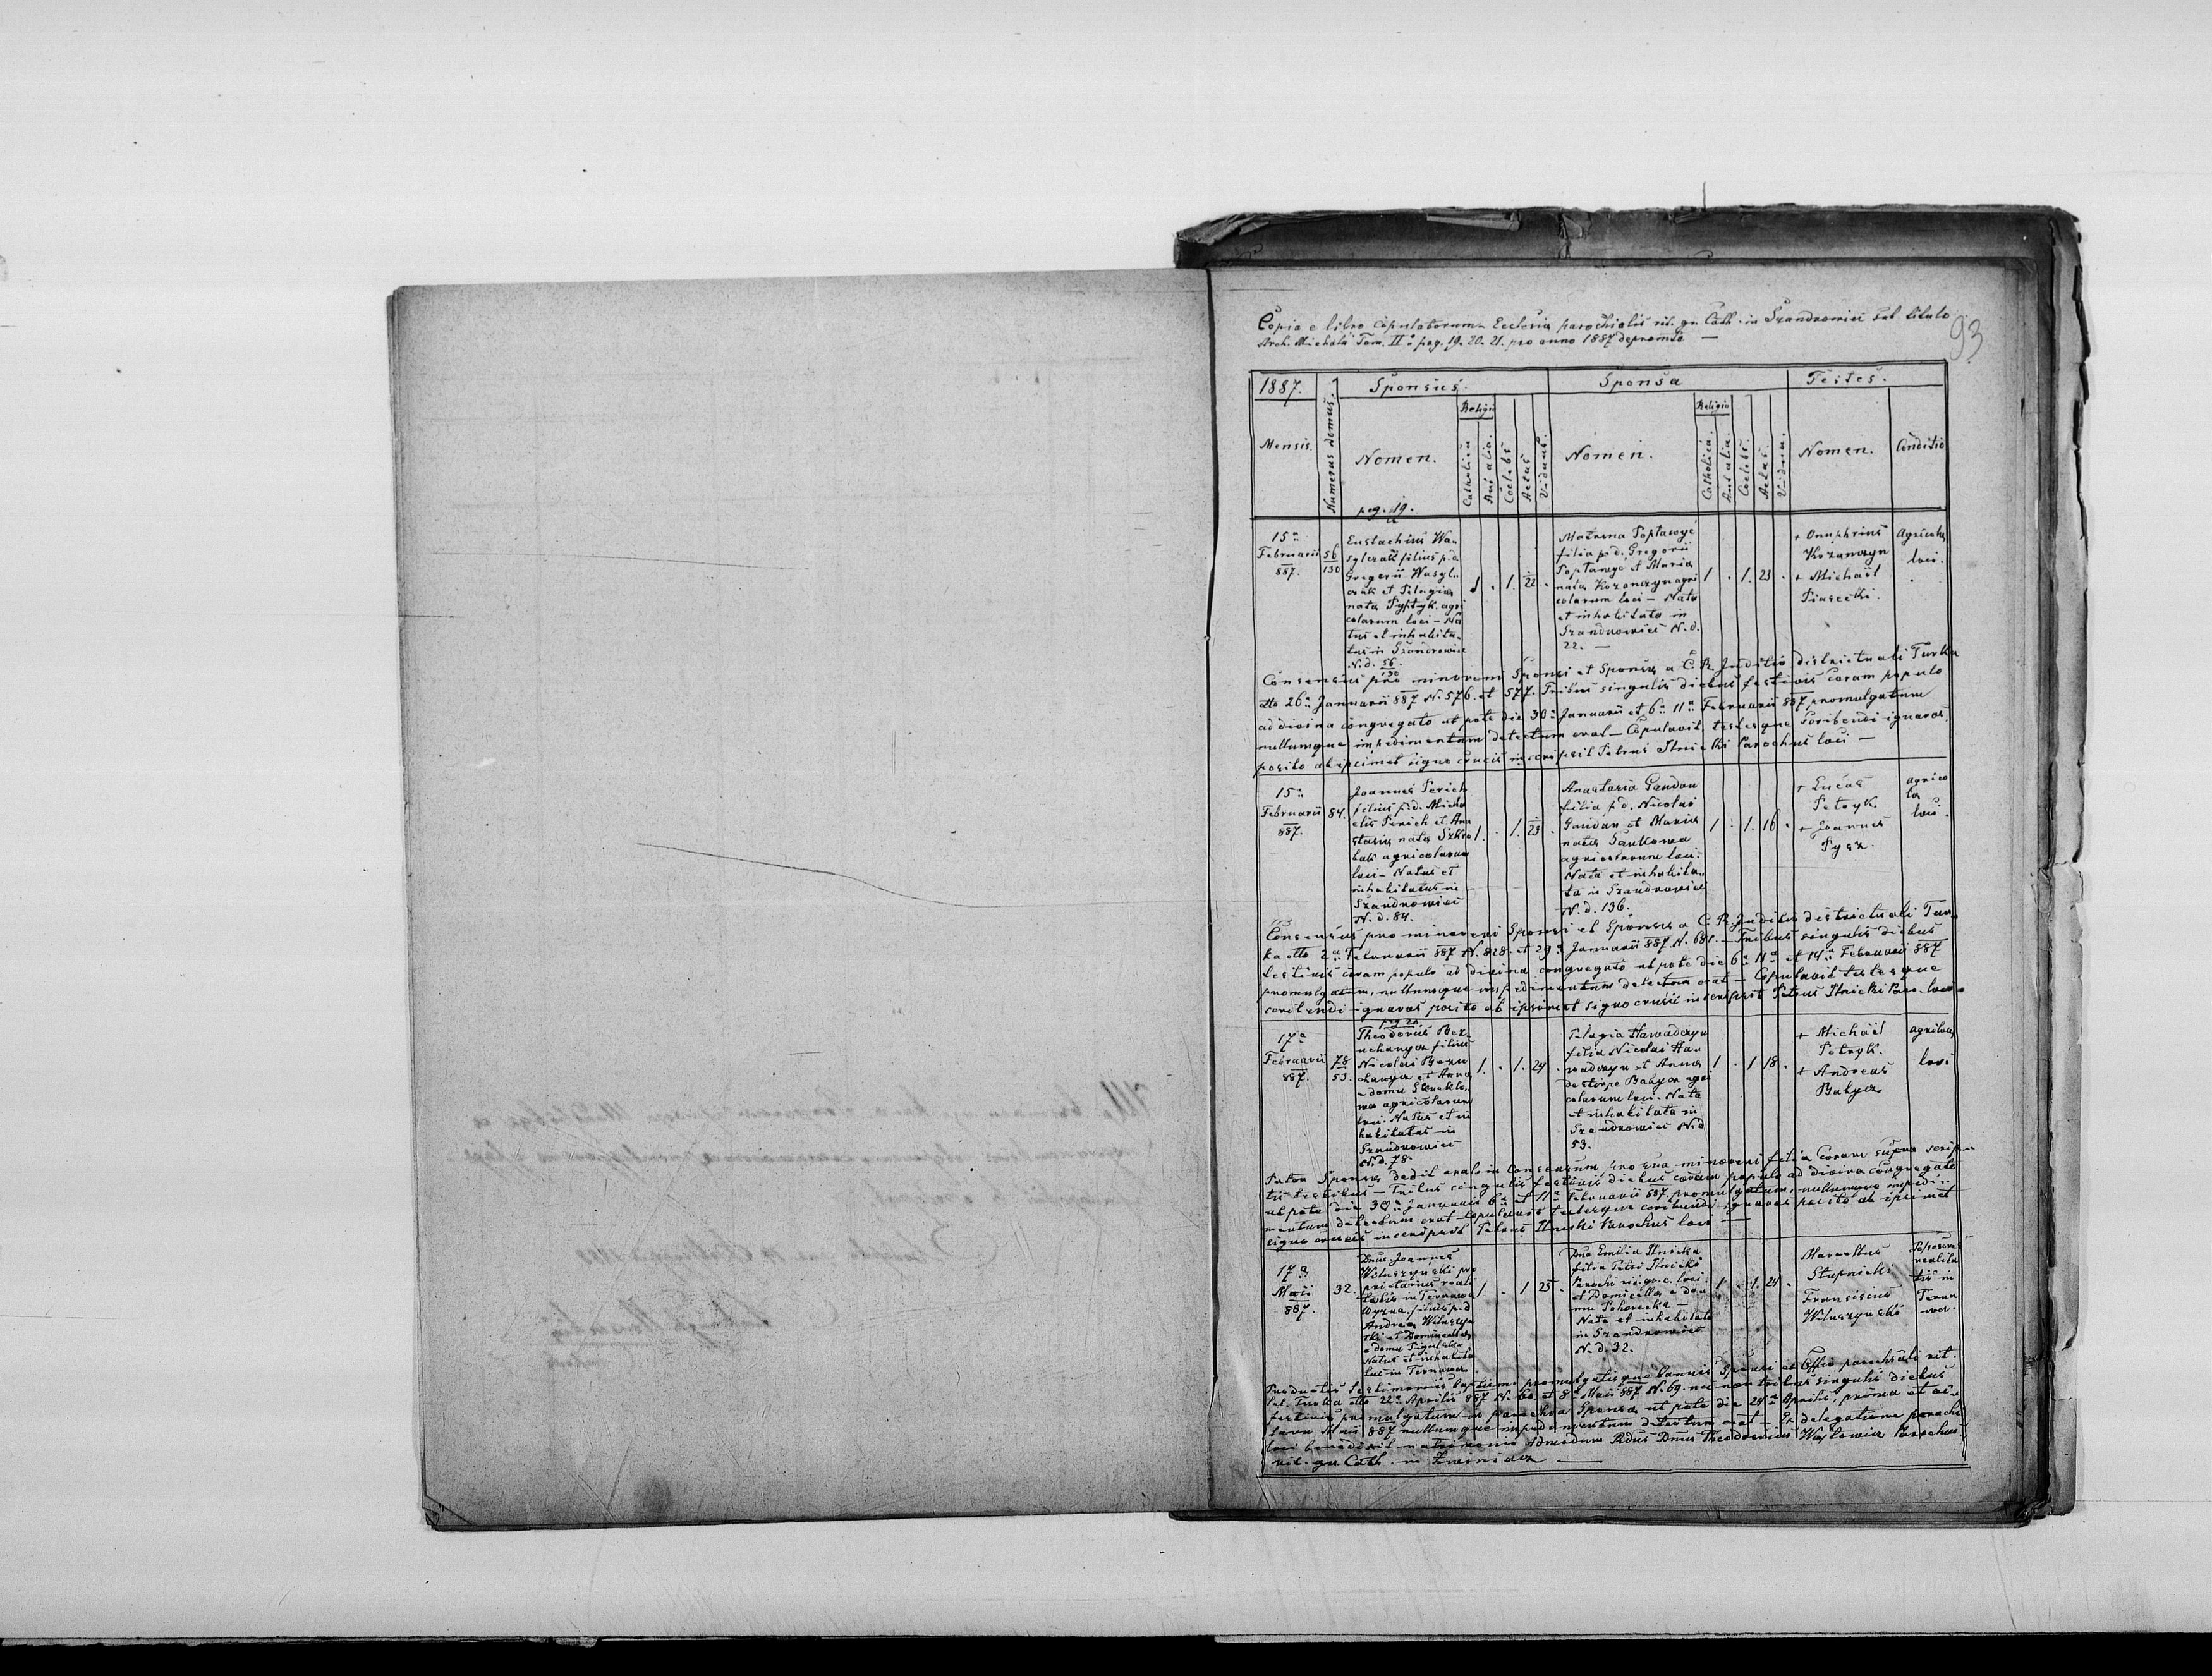 Copia e libro Copulatorum Ecclesiæ parochialis rit. gr. Cath. in Szandrowiec sub titulo
Arch. Michaeli Tom. II. pag. 19. 20. 21. pro anno 1887 depromta —
93
1887.
Numerus domus.
Sponsus.
Sponsa
Testes.
Mensis.
Nomen.
Religio
Catholica
Aut alia.
Coelebs
Aetas
Viduus.
Nomen.
Religio
Catholica.
Aut alia.
Coelebs.
Aetas.
Vidua.
Nomen.
Conditio
pag. 19.
15a
Februarii
887.
56
130
Eustachius Wa-
sylczak filius p.d.
Gregorii Wasyl-
czak et Pelagiæ
natæ Pyptyk. agri
colarum loci — Na
tus et inhabita-
tus in Szandrowiec
N.d. 56.
130
1 . 1. 22 .
Matrona
filia p.d. Gregorii
et Mariæ
natæ agri
colarum loci — Nata
et inhabitata in
Szandrowiec N.d.
22. —
1 . 1. 23 .
+ Onuphrius
+ Michaël
Piasecki.
Agricolæ
loci.
Consensus pro minoreni Sponsi et Sponsæ a C. R. Juditio districtuali Turka
dtto 26a Januarii 887 N. 576. et 577. Tribus singulis diebus festivis coram populo
ad divina congregato ut pote die 30a Januarii et 6a 11a Februarii 887 promulgatum
nullumque impedimentum detectum erat — Copulavit testesque scribendi ignaros
posito ab ipsimet signo crucis inscripsit Petrus Ilnicki Parochus loci —
15a
Februarii
887.
84.
Joannes Perich
filius p.d. Micha
elis Perich et Ana
stasiæ natæ
agricolarum
loci — Natus et
inhabitatus in
Szandrowiec
N. d. 84.
1. . 1. 23 .
Anastasia Gandau
filia p.d. Nicolai
Gandan et Mariæ
natæ
agricolarum loci.
Nata et inhabita-
ta in Szandrowiec
N. d. 136.
1 . 1. 16 .
+ Lucas
Petryk
+ Joannes
Pysz.
agrico
læ
loci.
Consensus pro minoreni Sponsi et Sponsæ a C. R. Juditio districtuali Tur-
ka dtto 2a Februarii 887 N. 828. et 29a Januarii 887. N. 681. — Tribus singulis diebus
festivis coram populo ad divina congregato ut pote die 6a 11a et 14a Februarii 887
promulgatum, nullumque impedimentum detectum erat — Copulavit testesque
scribendi ignaros posito ab ipsimet signo crucis inscripsit Petrus Ilnicki Par. loci
pag 20.
17a
Februarii
887.
78
53.
Theodorus
filius
Nicolai
et Annæ
e domo
agricolarum
loci. Natus et in
habitatus in
Szandrowiec
N.d. 78.
1. . 1. 24 .
Pelagia Hawadczyn
filia Nicolai Ha-
wadczyn et Annæ
de stirpe Babycz agri
colarum loci. Nata
et inhabitata in
Szandrowiec N.d.
53.
1 . 1 18 .
+ Michaël
Petryk.
+ Andreas
Babycz
agricolæ
loci
Pater Sponsæ dedit oralem Consensum pro sua minoreni filia Coram supra scrip-
tis testibus — Tribus singulis festivis diebus coram populo ad divina congregato
ut pote die 30a Januarii 6a et 11a Februarii 887 promulgatum, nullumque impedi-
mentum detectum erat Copulavit testesque scribendi ignaros posito ab ipsimet
signo crucis inscripsit Petrus Ilnicki Parochus loci —
17a
Maii
887.
32.
Dnus Joannes
Wiluszyński pro
prietarius reali
tatis in Ternawa
wyzna. filius p.d
Andreæ Wiluszyń
ski et
e domo
Natus et inhabita
tus in Ternawa
1 . 1 25 .
Dna Emilia Ilnicka
filia Petri Ilnicki
Parochi rit. gr. c. loci
et Domicellæ e do-
mo
Nata et inhabitata
in Szandrowiec
N. d. 32.
1 . 1. 24 .
Marcellus
Stupnicki
Franciscus
Wiluszyński
Possessores
realita
tis in
Terna
wa.
Productis testimoniis baptismi promulgatisque bannis Sponsi ex Offic parochiali rit.
lat. Turka dtto 22a Aprilis 887 N. 60. et 8a Maii 887 N. 69. nec non tribus singulis diebus
festivis promulgatum in parochia Sponsæ ut pote die 24a Aprilis, prima et oc-
tava Maii 887 nullumque impedimentum detectum erat — Ex delegatione parochi
loci benedixit matrimonio Admodum Rdus Dnus Theodosius Wojtowicz Parochus
rit. gr. Cath. in —